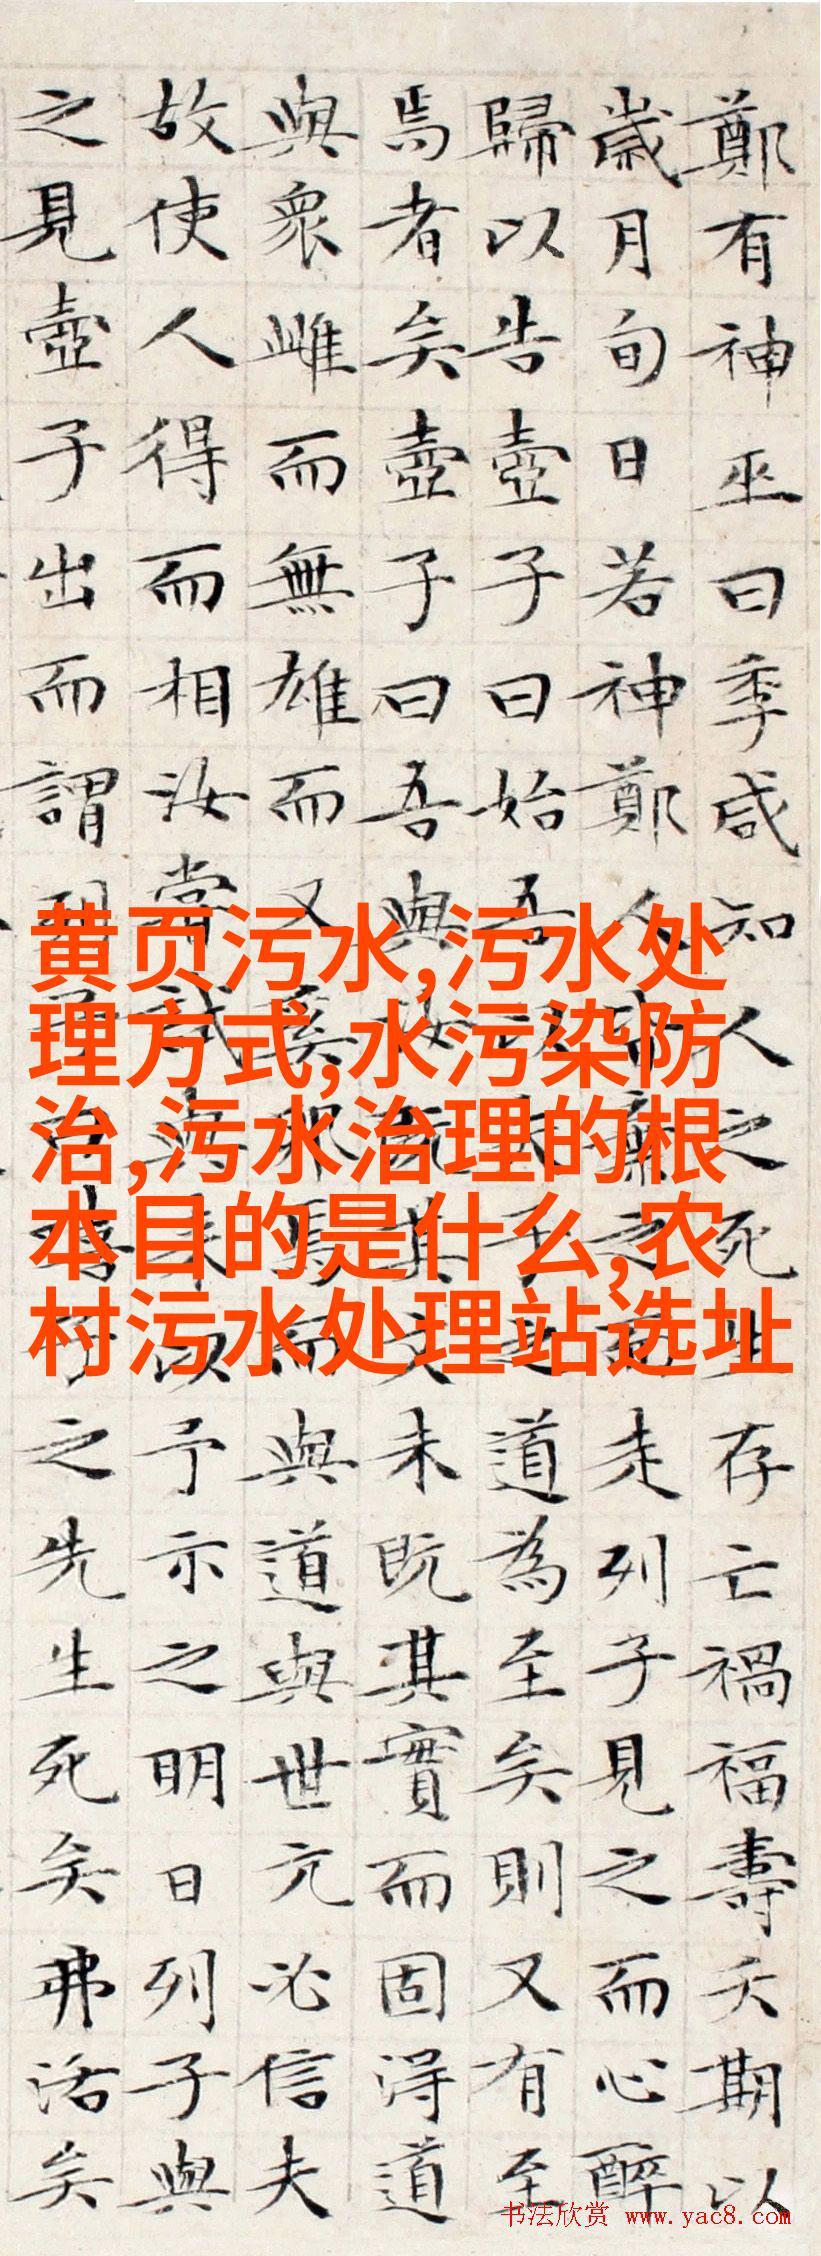 鄭有神巫曰季咸知人之死生存亡禍福壽夭期以
歲月旬日若神鄭人皆棄之而走列子見之而心醉
歸以告壺子曰始吾以夫子之道為至矣則又有至
焉者矣壺子曰吾與汝既其文未既其實而固得道
與衆雌而無雄而又奚卵焉而與道與世亢必信夫
故使人得而相汝嘗試與來以予示之明日列子與
之見壺子出而謂列子曰嘻子之先生死矣弗活矣
黄页污水,污水处
理方式,水污染防
治,污水治理的根
本目的是什么,农
村污水处理站选址
书法欣赏 www.yac8.com